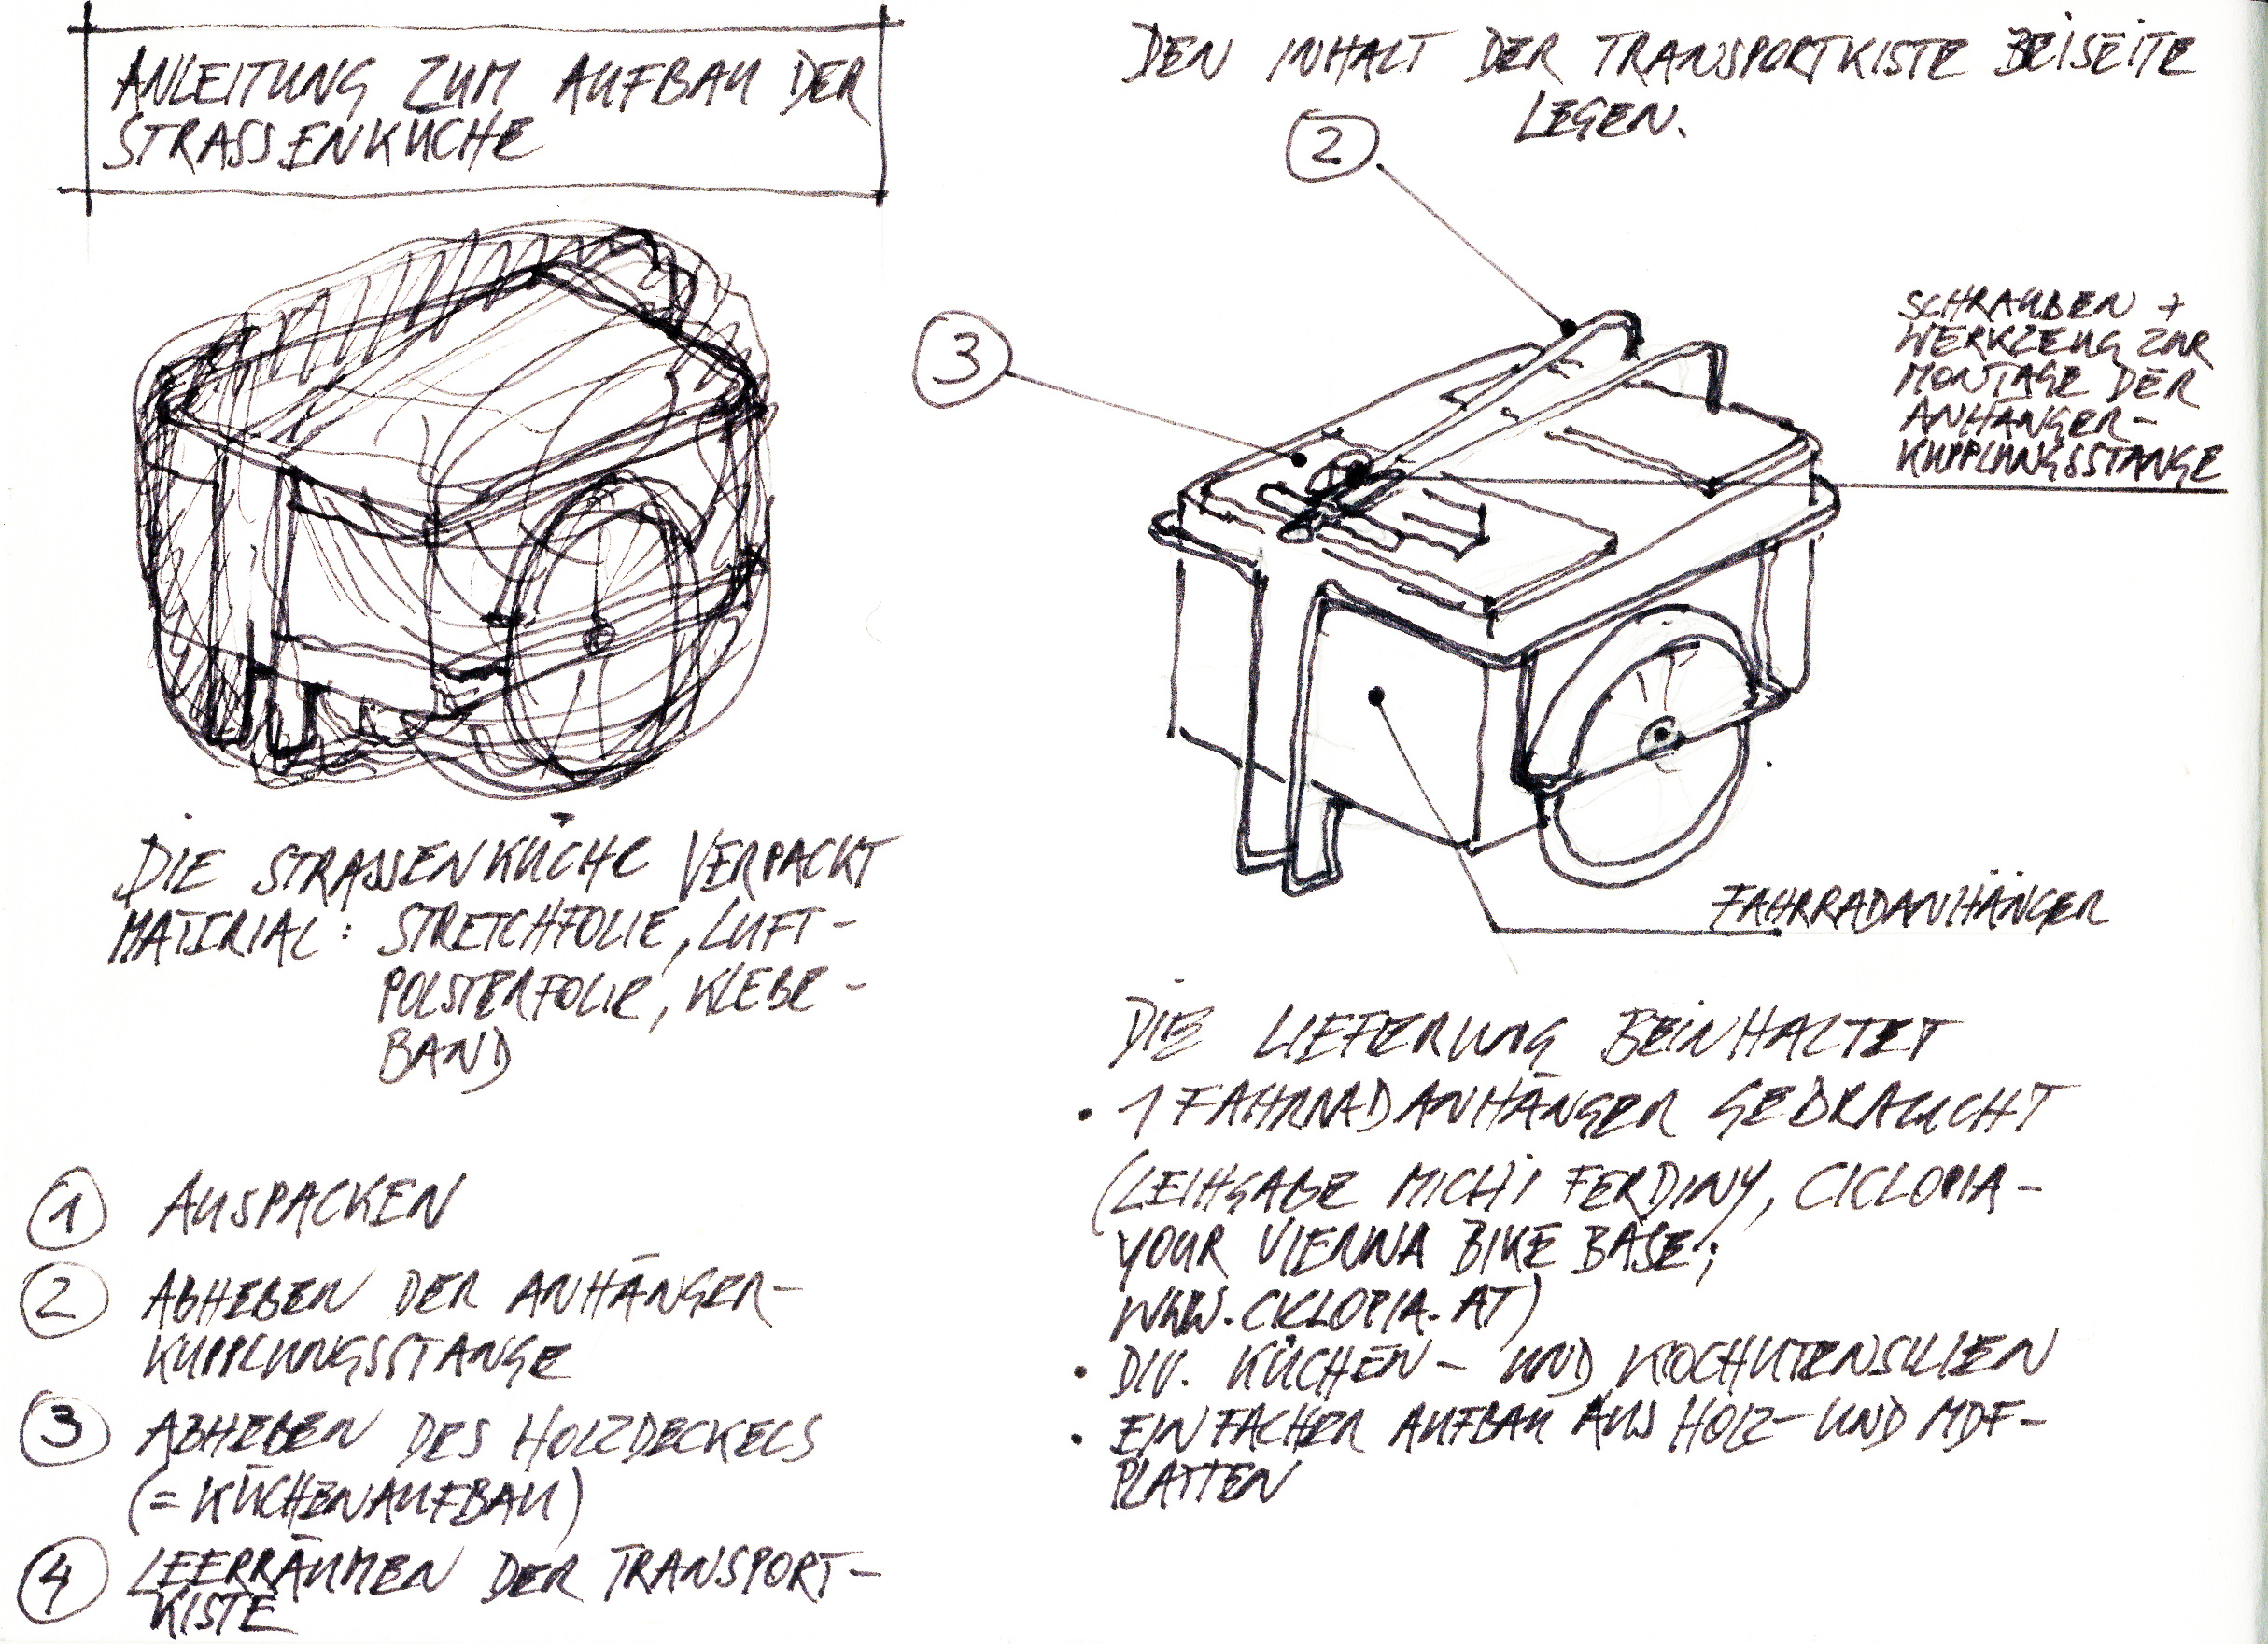 ANLEITUNG ZUM AUFBAU DER
STRASSENKÜCHE
DIE STRASSENKÜCHE VERPACKT
MATERIAL: STRETCHFOLIE, LUFT-
POLSTERFOLIE, KLEBE-
BAND
1 AUSPACKEN
2 ABHEBEN DER ANHÄNGER-
KUPPLUNGSSTANGE
3 ABHEBEN DES HOLZDECKELS
(= KÜCHENAUFBAU)
4 LEERRÄUMEN DER TRANSPORT-
KISTE
DEN INHALT DER TRANSPORTKISTE BEISEITE
LEGEN.
2
3
SCHRAUBEN +
WERKZEUG ZUR
MONTAGE DER
ANHÄNGER-
KUPPLUNGSSTANGE
FAHRRADANHÄNGER
DIE LIEFERUNG BEINHALTET
• 1 FAHRRADANHÄNGER GEBRAUCHT
(LEIHGABE MICHI FERDINY, CICLOPIA-
YOUR VIENNA BIKE BASE;
WWW.CICLOPIA.AT)
• DIV. KÜCHEN- UND KOCHUTENSILIEN
• EINFACHER AUFBAU AUS HOLZ- UND MDF-
PLATTEN